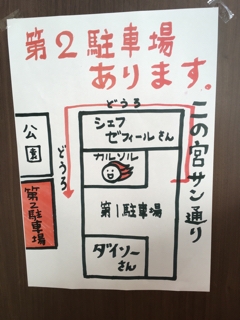 第2駐車場
あります。
どうろ
シェフ
ゼフィールさん
カルソル
第1駐車場
ダイソー
さん
どうろ
公園
第2駐車場
この宮サン通り